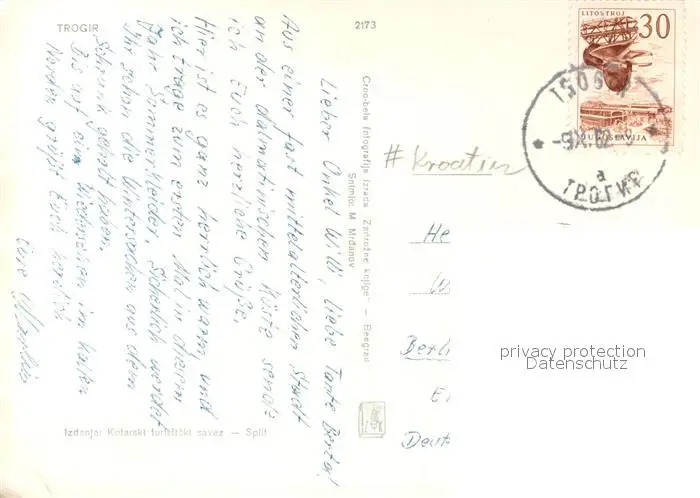 TROGIR
2173
LITOSTROJ
30
JUGOSLAVIJA
ТРОГИР
a
# Kroatien
Lieber Onkel Willi, liebe Tante Berta!
Aus einer fast mittelalterlichen Stadt
an der dalmatinischen Küste sende
ich Euch herzliche Grüße.
Hier ist es ganz herrlich warm und
ich trage zum ersten Mal in diesem
Jahr Sommerkleider. Sicherlich werdet
Ihr schon die Wintersachen aus dem
Schrank geholt haben.
Bis auf ein Wiedersehen im kalten
Norden grüßt Euch herzlich
Eure
Crno-bela fotografija Izrada "Zadružne knjige" — Beograd
Snimio: M. Mrđanov
He
Berli
Deut
privacy protection
Datenschutz
Izdanje: Kotarski turistički savez — Split